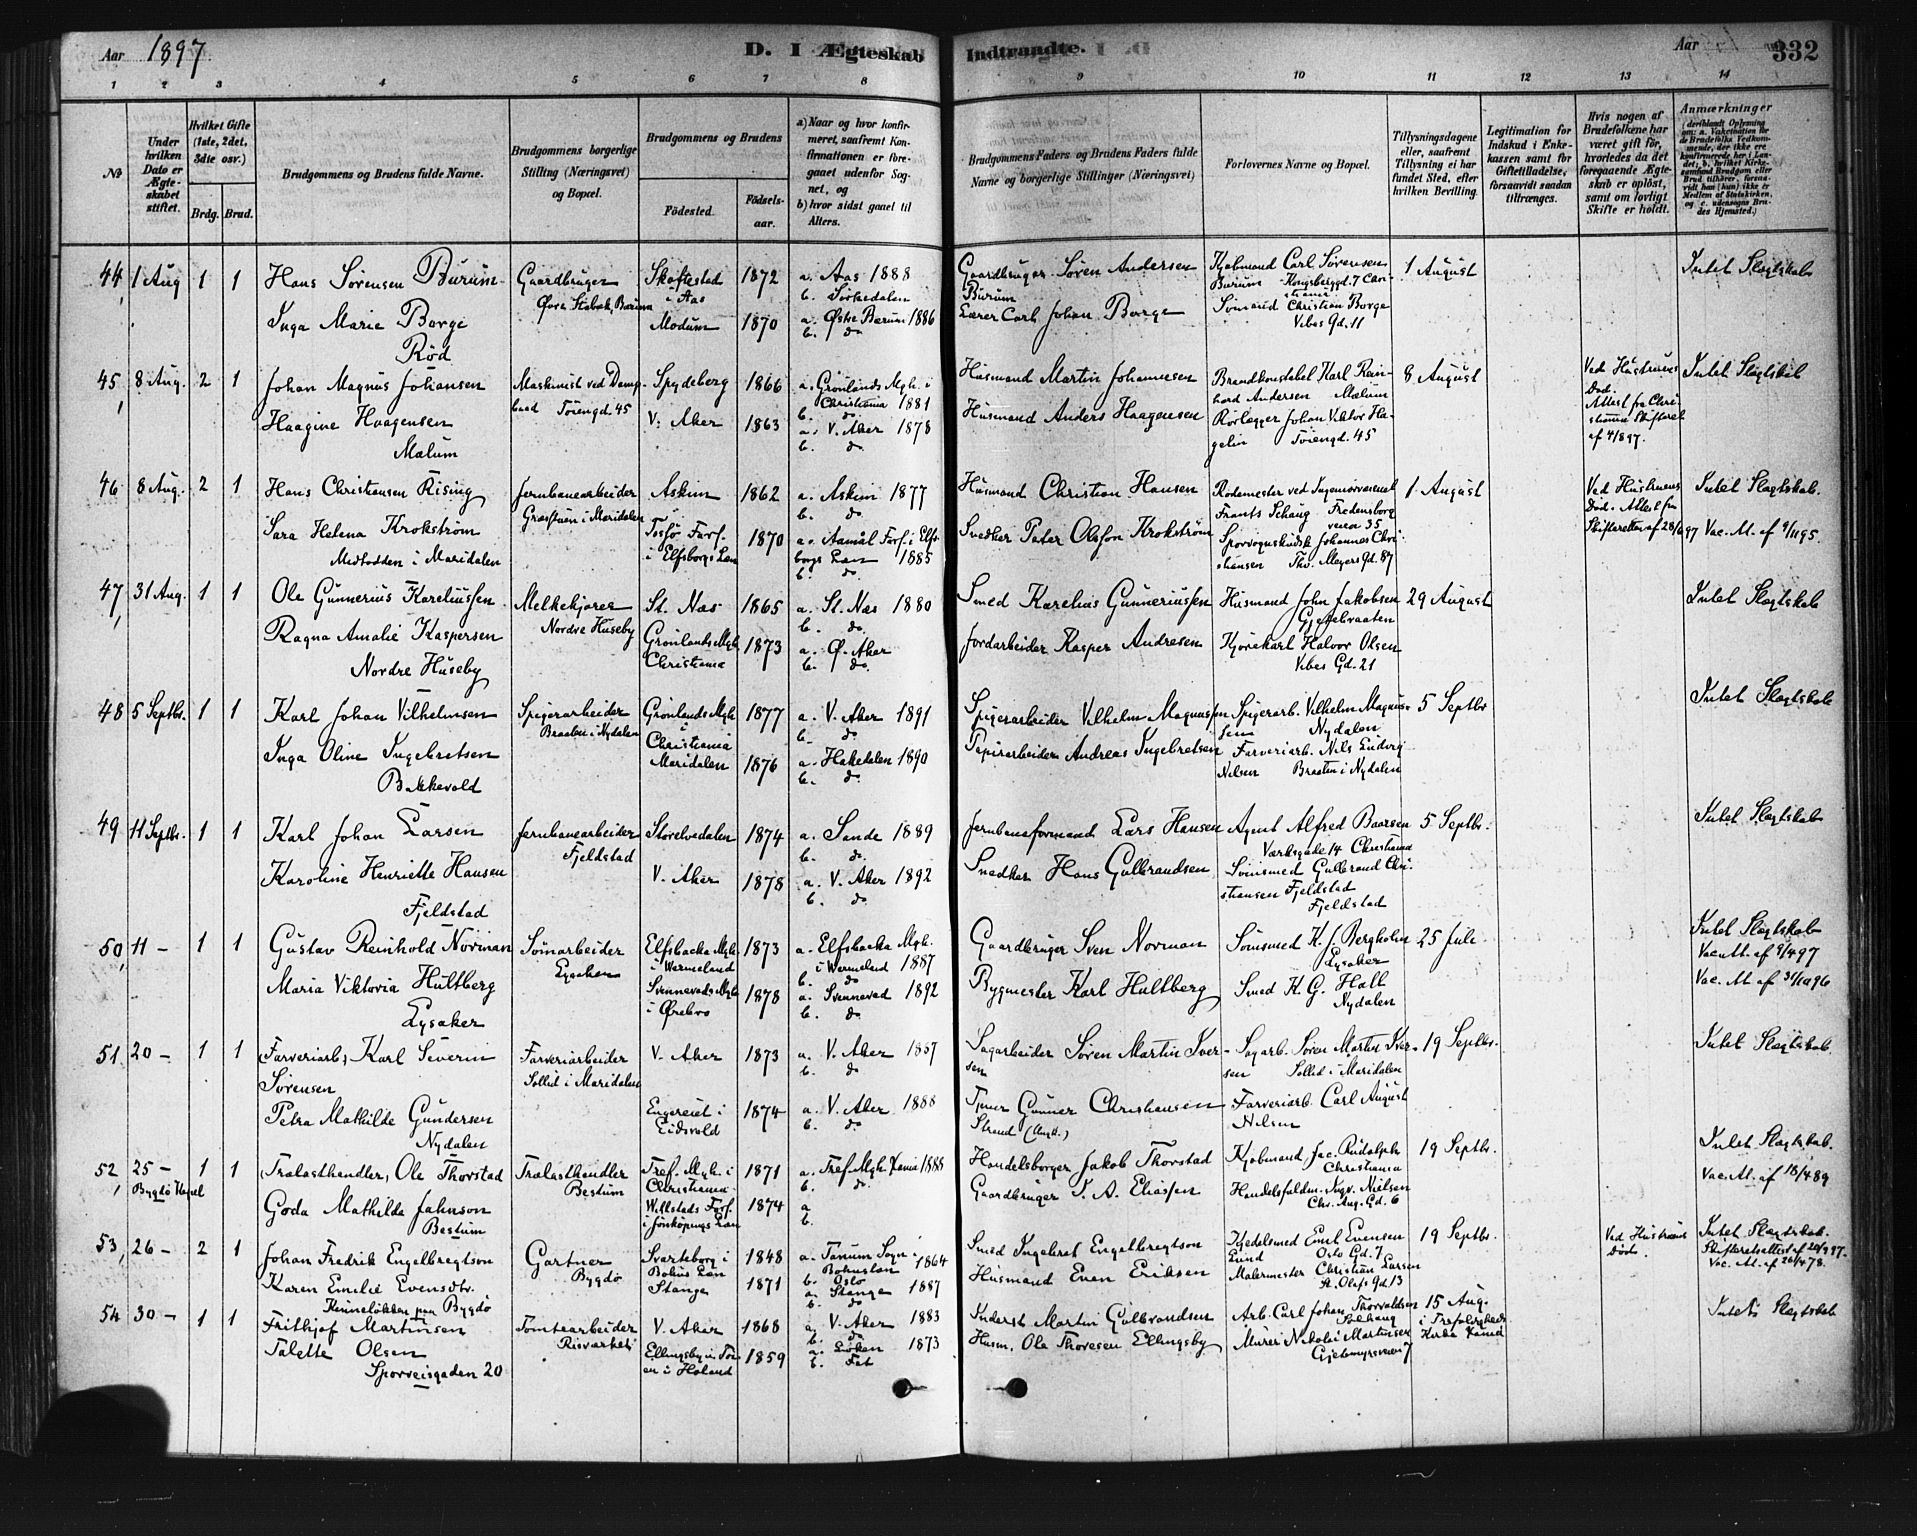 Aar 1897.
D. I Ægteskab Indtraadte.
Aar
332
1 2 3 4 5 6 7 8 9 10 11 12 13 14
No
Under hvilken Dato er Ægteskabet stiftet.
Hvilket Gifte (1ste, 2det, 3die osv.)
Brdg. Brud.
Brudgommens og Brudens fulde Navne.
Brudgommens borgerlige Stilling (Næringsvei) og Bopæl.
Brudgommens og Brudens
Födested.
Födselsaar.
a) Naar og hvor konfirmeret, saafremt Konfirmationen er foregaaet udenfor Sognet, og
b) hvor sidst gaaet til Alters.
Brudgommens Faders og Brudens Faders fulde Navne og borgerlige Stillinger (Næringsvei)
Forlovernes Navne og Bopæl.
Tillysningsdagene eller, saafremt Tillysning ei har fundet Sted, Bevilling.
Legitimation for Indskud i Enkekassen samt for Giftetilladelse, forsaavidt saadan tiltrænges.
Hvis nogen af Brudefolkene har været gift før, hvorledes da det foregaaende Ægteskab er oplöst, samt om lovligt Skifte er holdt.
Anmærkninger
44, 1 Aug 1 1 Hans Sørensen Burum Gaardbruger Skoftestad i Aas 1872 a. Aas 1888 b. Sørkedalen Gaardbruger Søren Andersen Burum Kjøbmand Carl Sørensen Burum Kongsberggd. 7 Christiania 1 August Intet Slægtskab
Inga Marie Borge Rød Modum 1870 a. Østre Bærum 1886 b. do Lærer Carl Johan Borge Sømand Christian Borge Vibes Gd. 11
45, 8 Aug. 2 1 Johan Magnus Johansen Maskinist ved Tøiengd. 45 Spydeberg 1866 a. Grønlands Mgh. i Christiania 1881 b. do Husmand Martin Johannesen Brandkonstabel Karl Reinhard Andersen Mælum 8 August Ved Hustruens Død. Attest fra Christiania Skifteret Intet Slægtskab
Haagine Haagensen Mælum V. Aker 1863 a. V. Aker 1878 b. do Husmand Anders Haagensen Rørlægger Johan Viktor Hagelin Tøiengd. 45
46 8 Aug. 2 1 Hans Christiansen Rising Jernbanearbeider i Maridalen Askim 1862 a. Askim 1877 b. do Husmand Christian Hansen Rodemester ved Ingeniørvæsenet Frants Schaug Fredensborgveien 35 1 August Ved Hustruens Død. Attest fra Skifteretten Intet Slægtskab.
Sara Helena Krokström i Maridalen Tossö Fors. i Elfsborgs Län 1870 a. Aamål Fors. i Elfsborgs Län 1885 b. do Snedker Peter Olsson Krokström Sporvognskudsk Johannes Christiansen Thv. Meyers Gd. 87 Vac. At. af 9/11 95.
47, 31 Aug. 1 1 Ole Gunnerius Kareliussen Melkekjører Nordre Huseby St. Næs 1865 a. St. Næs 1880 b. do. Smed Karelius Gunneriussen Husmand John Jakobsen 29 August Intet Slægtskab
Ragna Amalie Kaspersen Nordre Huseby Grønlands Mgh. Christiania 1873 a. Ø. Aker b. do. Jordarbeider Kasper Andresen Kjørekarl Halvor Olsen Vibes Gd. 21
48 5 Septbr. 1 1 Karl Johan Vilhelmsen Spigerarbeider Braaten i Nydalen Grønlands Mgh. Christiania 1877 a. V. Aker 1891 b. do Spigerarbeider Vilhelm Magnussen Spigerarb. Vilhelm Magnussen Nydalen 5 Septbr Intet Slægtskab
Inga Oline Ingebretsen Bakkevold Maridalen 1876 a. Hakedalen 1890 b. do. Papirarbeider Andreas Ingebretsen Farveriarb. Nils Ludvig Nilsen Braaten i Nydalen
49 11 Septbr. 1 1 Karl Johan Larsen Jernbanearbeider Fjeldstad Storelvedalen 1874 a. Sande 1889 b. do. Jernbaneformand Lars Hansen Agent Alfred Baarsen Værksgade 14 Christiania 5 Septbr. Intet Slægtskab
Karoline Henriette Hansen Fjeldstad V. Aker 1878 a. V. Aker 1892 b. do Snedker Hans Gulbrandsen Sømsmed Gulbrand Christiansen Fjeldstad Fjeldstad
50, 11 – 1 1 Gustav Reinhold Norman Sømarbeider Lysaker Elfsbacka Mgh. i Wermeland 1873 a. Elfsbacka Mgh. i Wermeland 1887 b. do Gaardbruger Sven Norman Sømsmed K. J. Bergholm Lysaker 25 Juli Intet Slægtskab Vac. At. af 9/4 97
Maria Viktoria Hultberg Lysaker Svennevads Mgh. i Ørebro 1878 a. Svennevad 1892 b. do Bygmester Karl Hultberg Smed K. G. Hall Nydalen Vac. At. af 31/10 96
51, 20 – 1 1 (Farveriarb.) Karl Severin Sørensen Farveriarbeider Sollid i Maridalen V. Aker 1873 a. V. Aker 1887 b. do Sagarbeider Søren Martin Iversen Sagarb. Søren Martin Iversen Sollid i Maridalen 19 Septbr. Intet Slægtskab.
Petra Mathilde Gundersen Nydalen Eidsvold 1874 a. V. Aker 1888 b. do Gunner Christiansen Strand Farveriarb. Carl August Nilsen
52, 25 – Bygdø Kapel 1 1 (Trælasthandler) Ole Thorstad Trælasthandler Bestum Tref. Mgh. i Christiania 1871 a. Tref. Mgh. Xania 1888 b. do. Handelsborger Jakob Thorstad Kjøbmand Jac. Rudolph Christiania 19 Septbr. Intet Slægtskab.
Goda Mathilda Johnson Bestum i Jönköpings Län 1874 a b. Gaardbruger J. A. Eliassen Handelsfuldm. Ingv. Nielsen Chr. Aug. Gd. 6 Vac. At. af 18/4 89
53, 26 – 2 1 Johan Fredrik Engelbregtson Gartner Bygdø Svarteborg i Bohus Län 1848 a. Tanum Sogn i Bohuslän 1864 b. Oslo Smed Ingebret Engelbregtson Kjedelsmed Emil Evensen Lund Oslo Gd. 7 19 Septbr. Ved Hustruens Død. Intet Slægtskab. Skifteretsattest
Karen Emilie Evensdtr. paa Bygdø Stange 1871 a. Stange 1887 b. do Husmand Even Eriksen Malermester Christian Larsen St. Olafs Gd. 13 Vac. At. af
54 30 – 1 1 Frithjof Martinsen Tomtearbeider V. Aker 1868 a. V. Aker 1883 b. do Inderst Martin Gulbrandsen Arb. Carl Johan Thorvaldsen Solhaug 15 Aug. i Trefoldigheds Kirke Intet Slægtskab
Talette Olsen Sporveisgaden 20 i Høland 1859 a. Løken 1873 b. Fet Husm. Ole Thoresen Ellingsby Murer Nikolai Martinsen Gjetemyrsveien 7